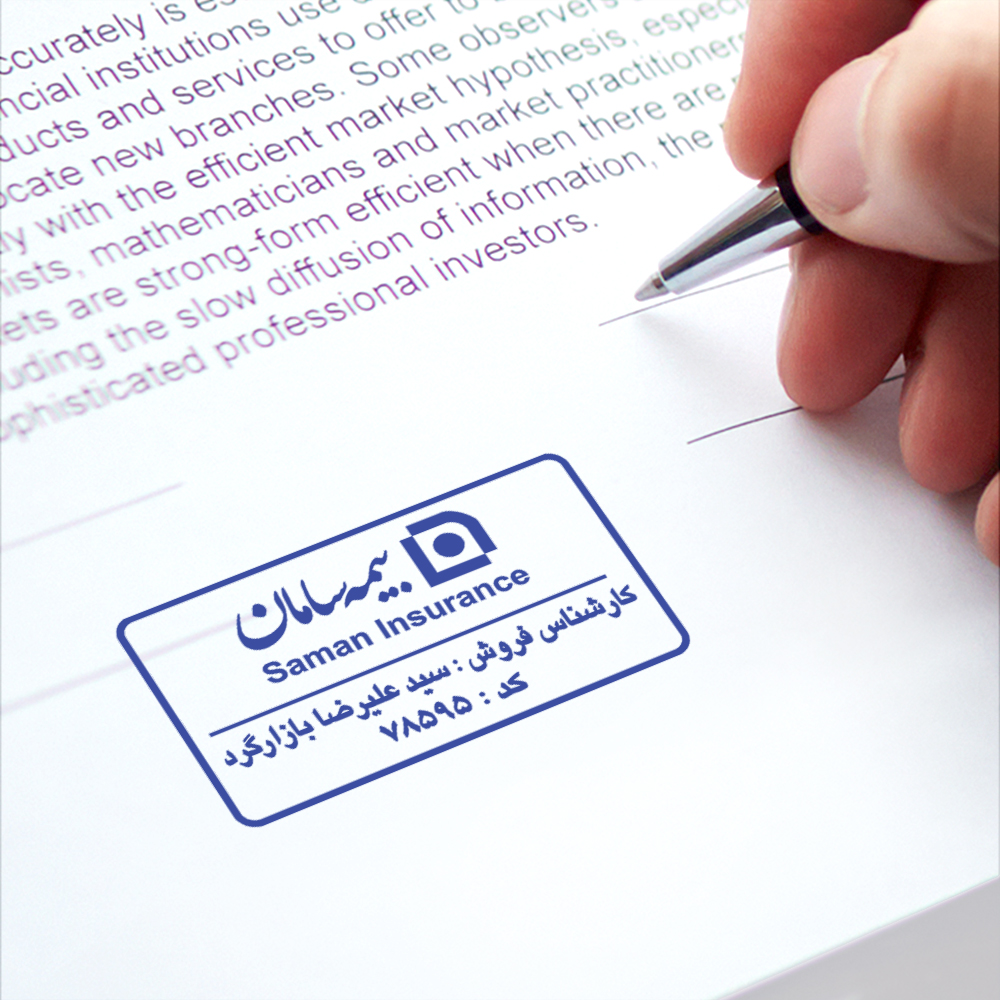 ccurately is es
ncial institutions use
ducts and services to offer to
ocate new branches. Some observers
ly with the efficient market hypothesis, especi
ists, mathematicians and market practitioners
ets are strong-form efficient when there are
uding the slow diffusion of information, the
ophisticated professional investors.
بیمه سامان
Saman Insurance
کارشناس فروش : سید علیرضا بازارگرد
کد : ۷۸۵۹۵